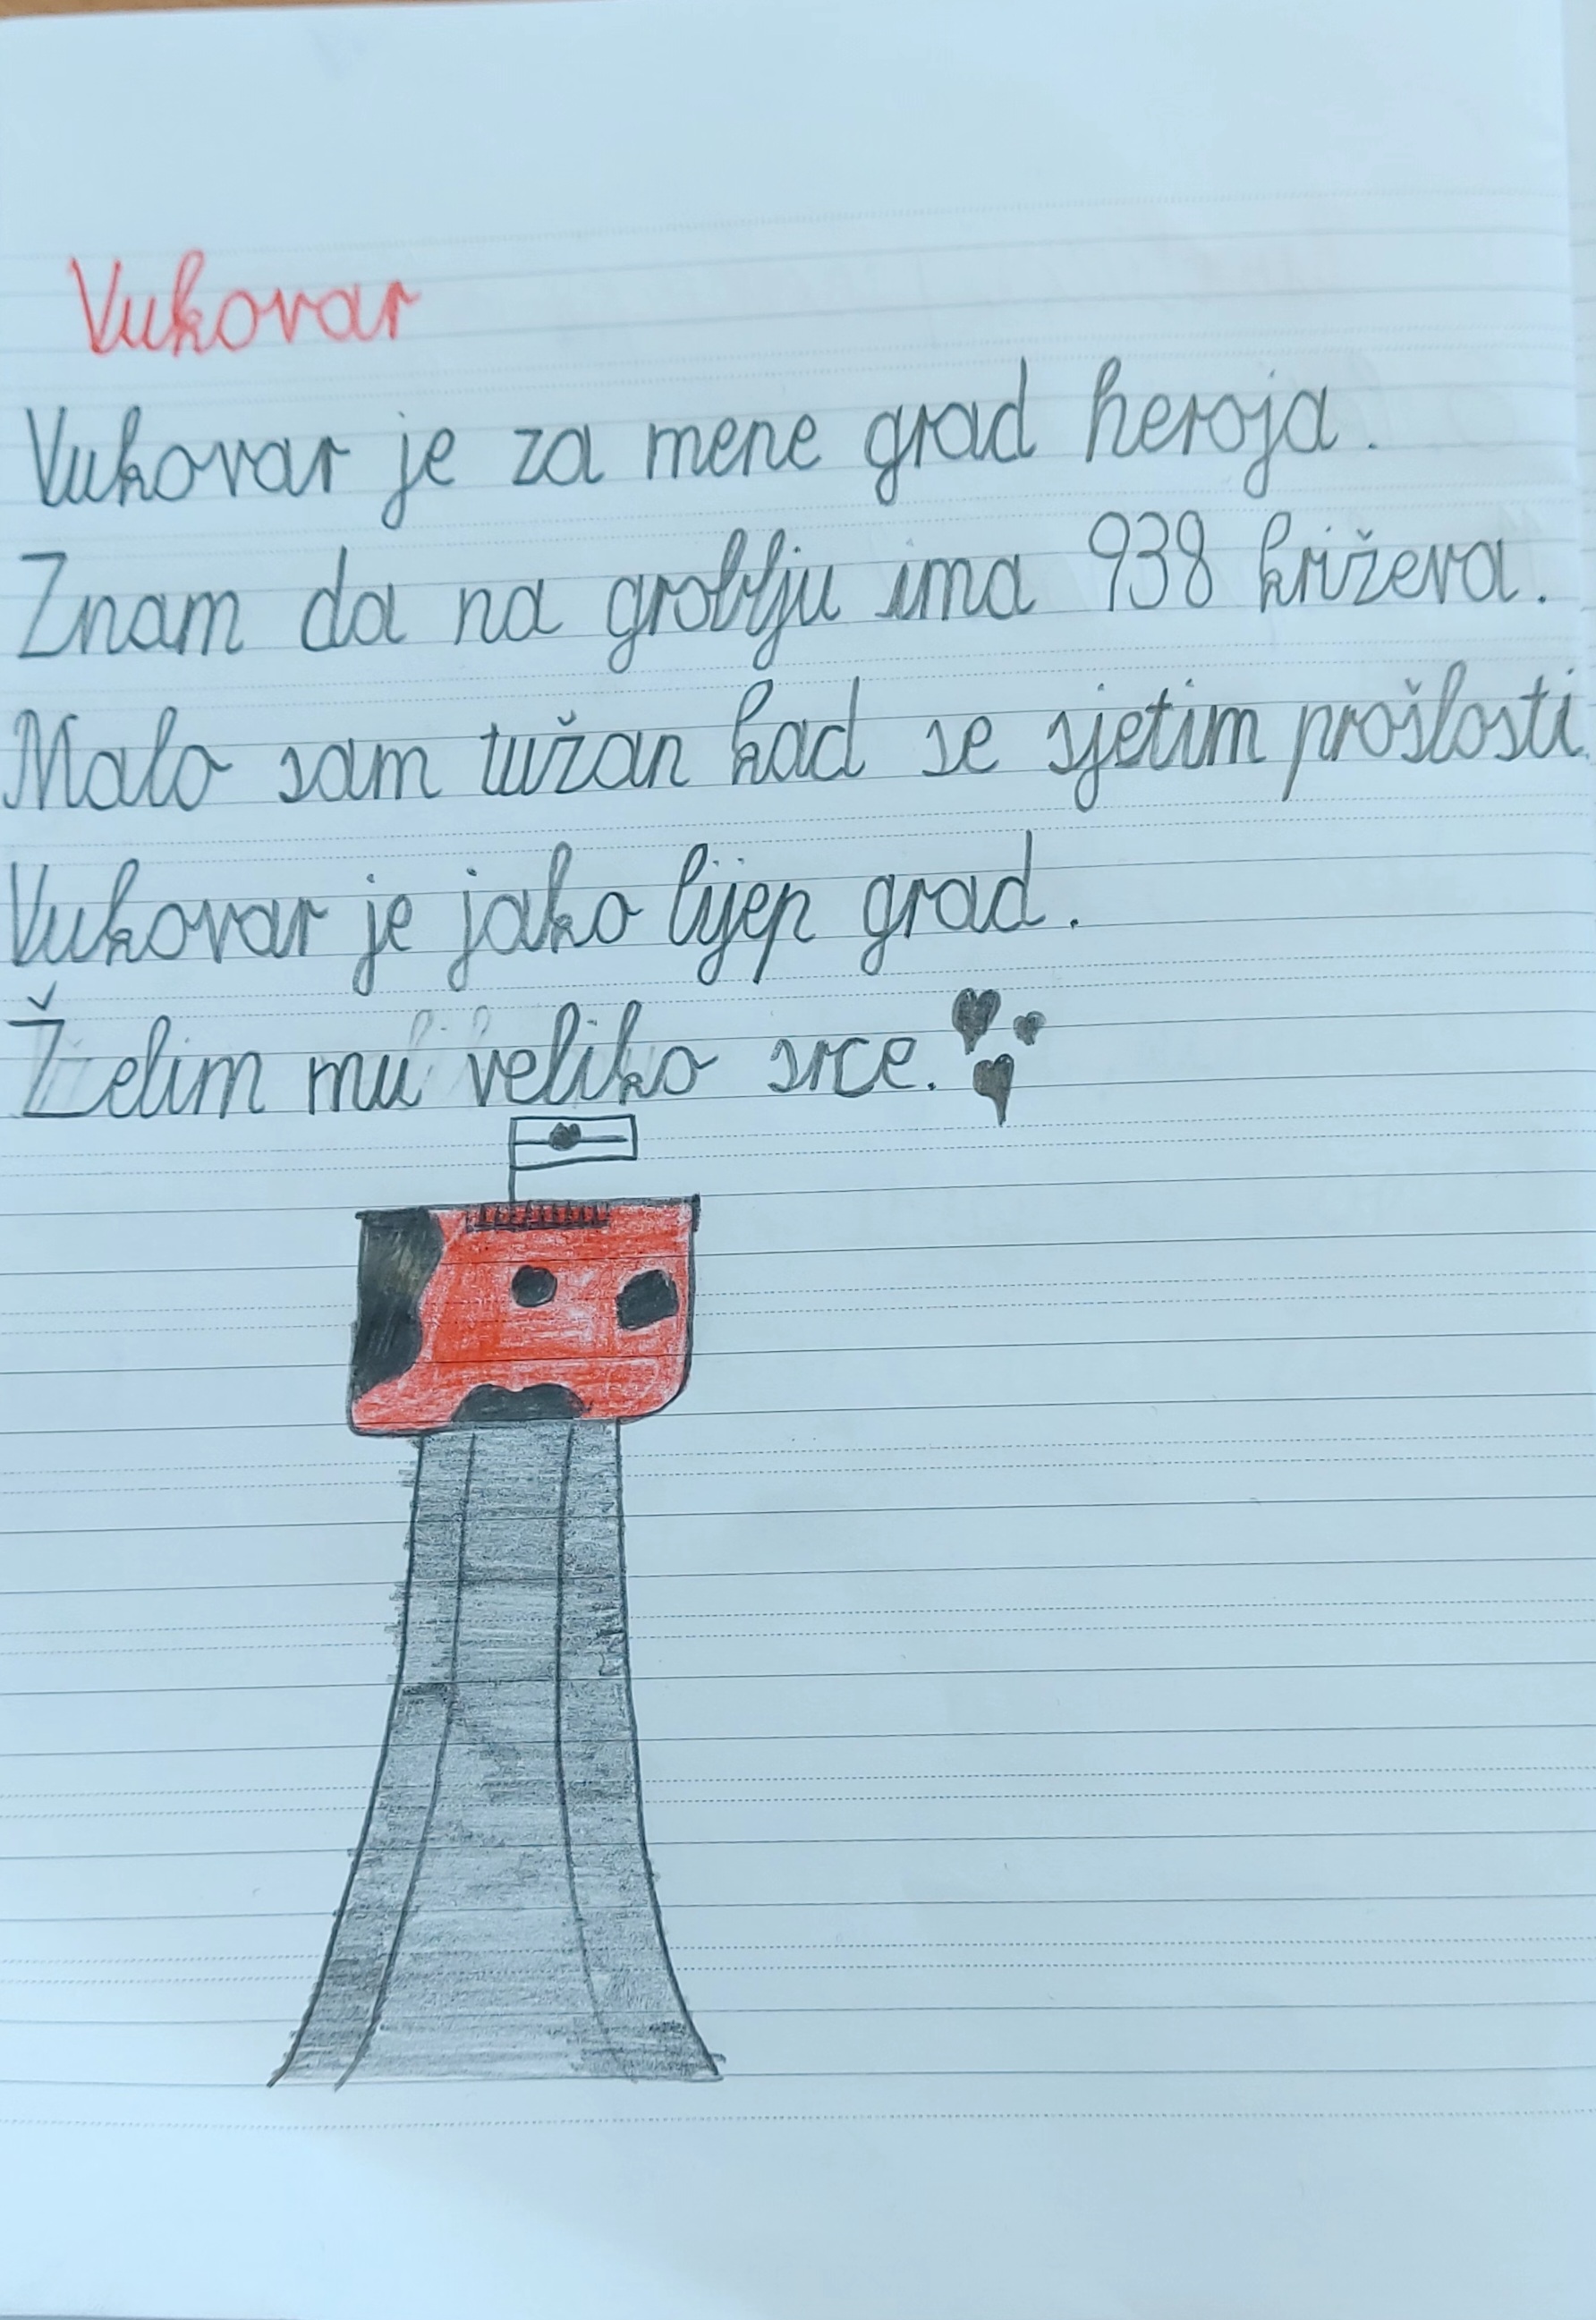 Vukovar
Vukovar je za mene grad heroja.
Znam da na groblju ima 938 križeva.
Malo sam tužan kad se sjetim prošlosti.
Vukovar je jako lijep grad.
Želim mu veliko srce.